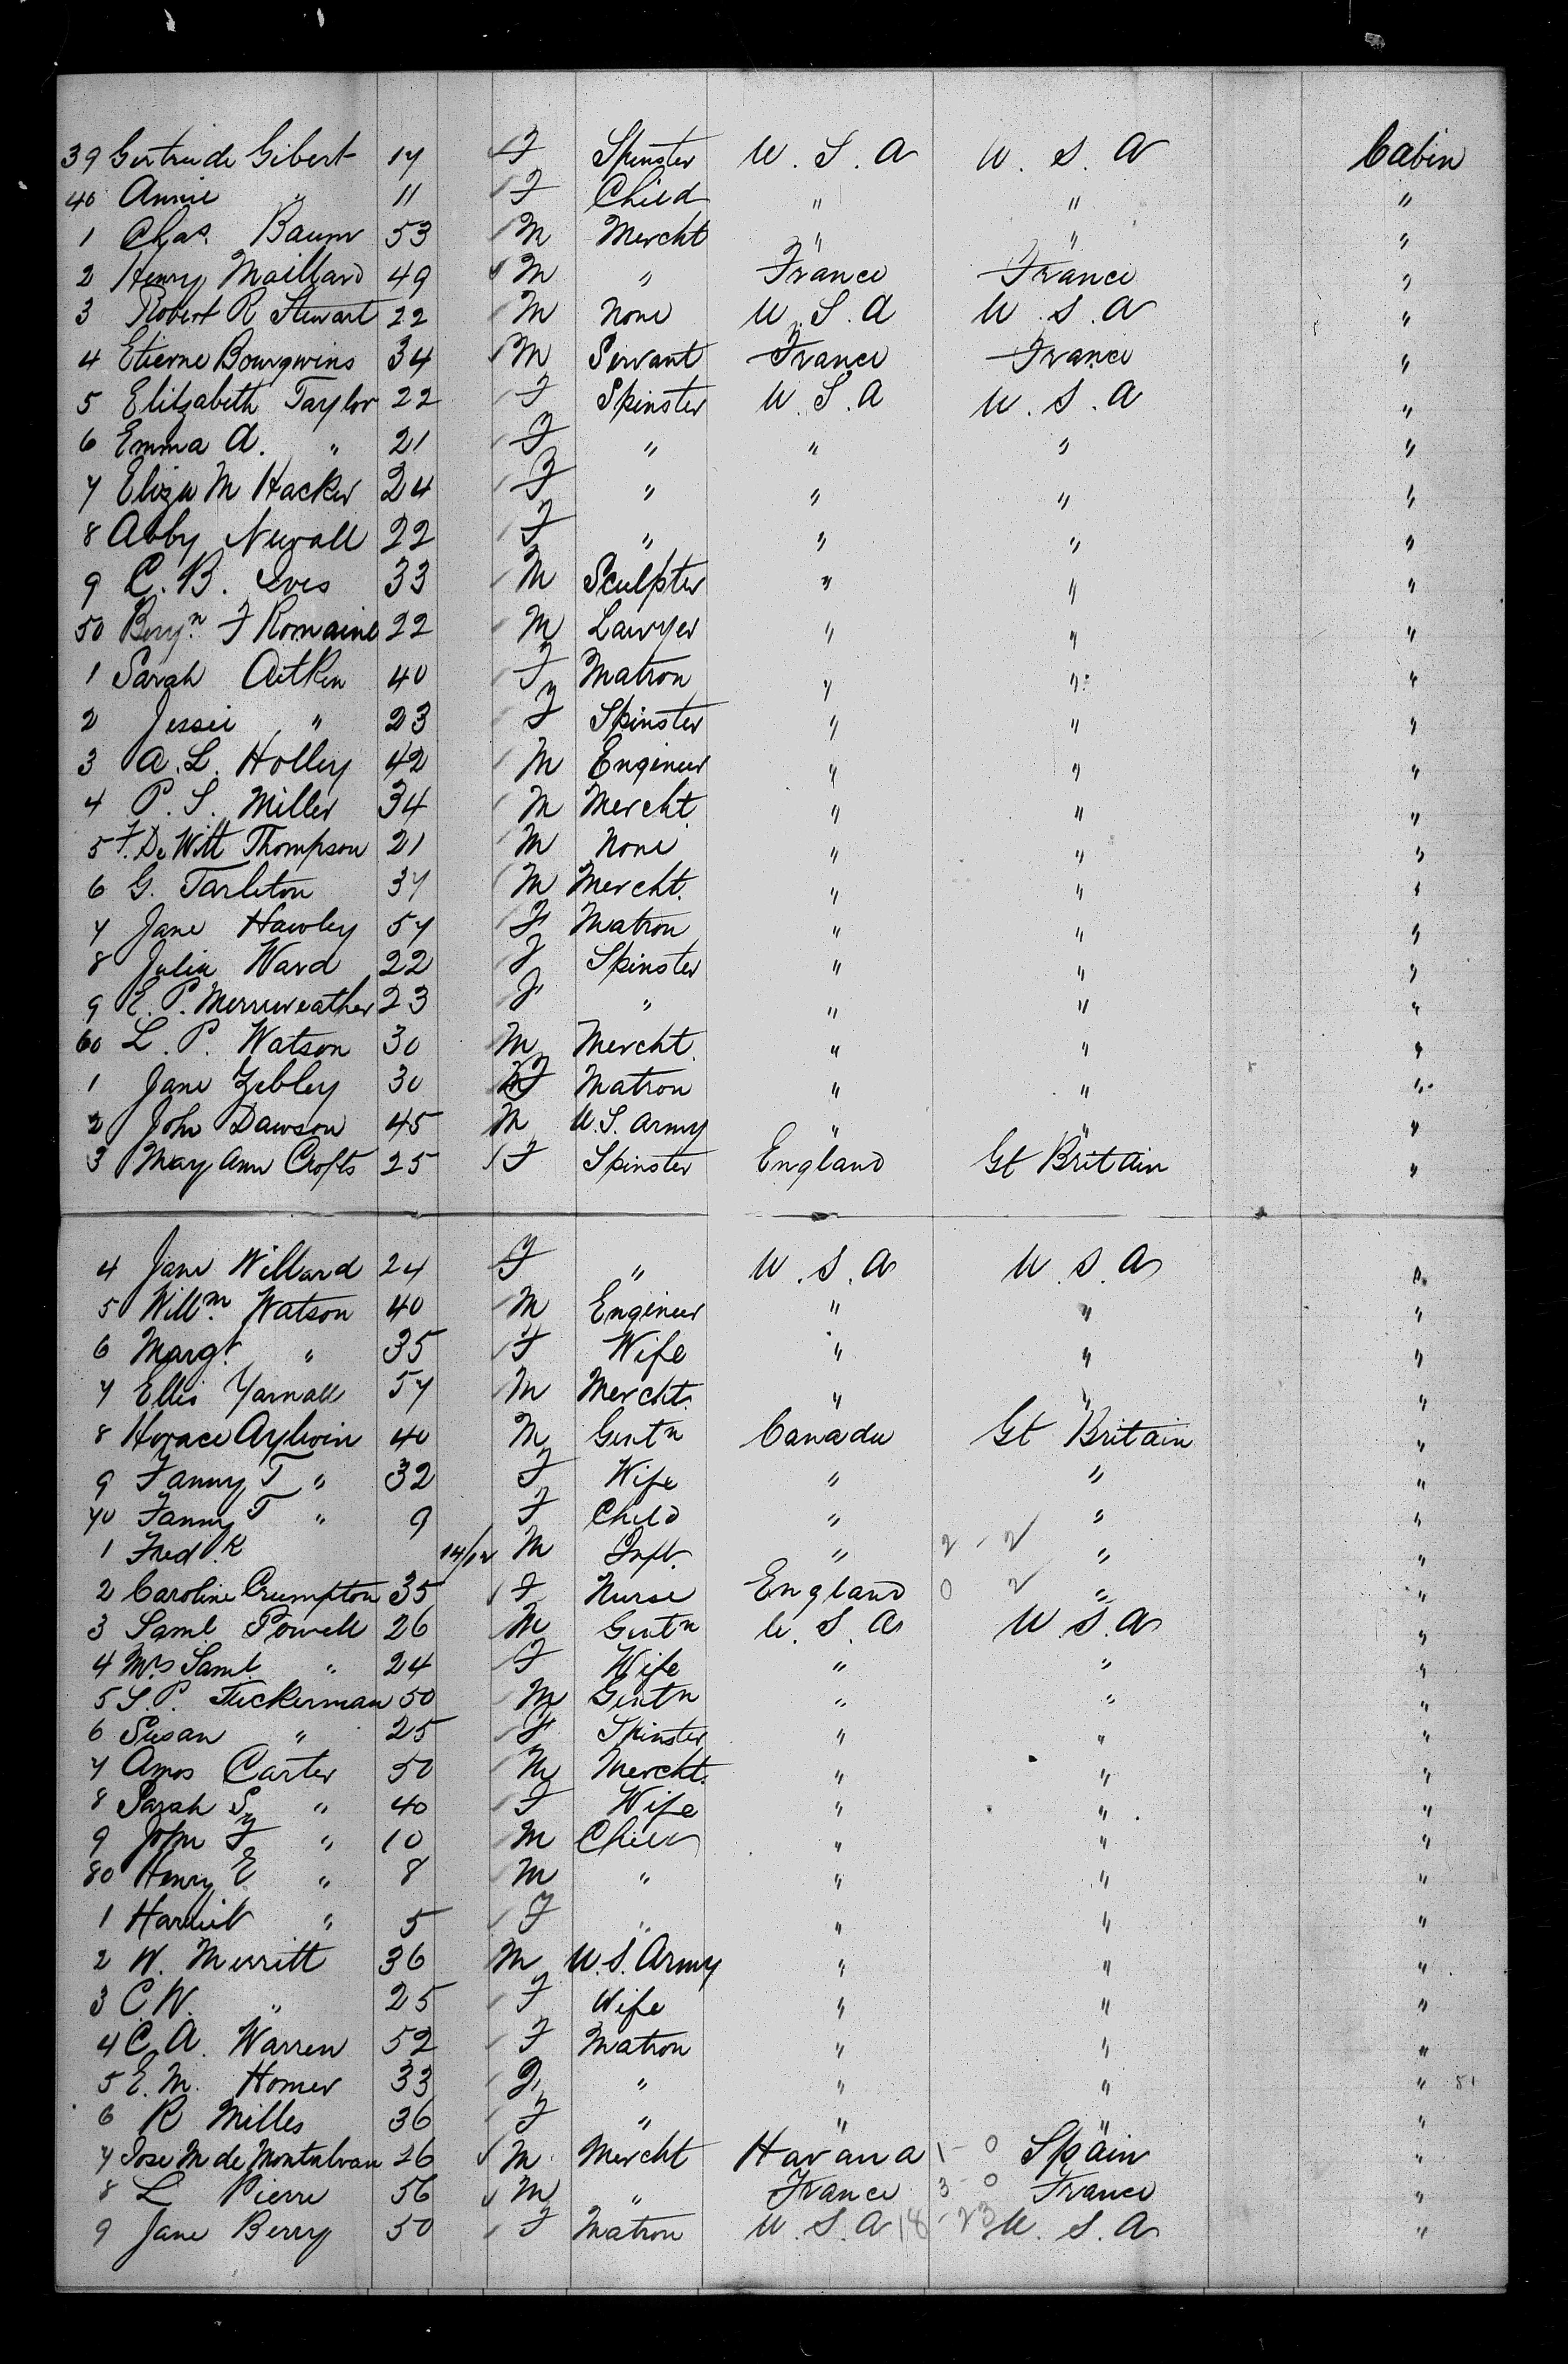 39 Gertrude Gibert 17 F Spinster U.S.A U.S.A Cabin
40 Annie " 11 F Child " " "
1 Chas. Baum 53 M Mercht " " "
2 Henry Maillard 49 M " France France "
3 Robert R Stewart 22 M None U.S.A U.S.A "
4 Etienne Bourgwins 34 M Servant France France "
5 Elitzabeth Taylor 22 F Spinster U.S.A U.S.A "
6 Emma A. " 21 F " " " "
7 Eliza M Hacker 24 F " " " "
8 Abby Newall 22 F " " " "
9 C.B. Ives 33 M Sculpter " " "
50 Benjn. F Romaine 22 M Lawyer " " "
1 Sarah Aitken 40 F Matron " " "
2 Jessie " 23 F Spinster " " "
3 A.L. Holley 42 M Engineer " " "
4 P.S. Miller 34 M Mercht. " " "
5 F. De Witt Thompson 21 M None " " "
6 G. Tarleton 37 M Mercht. " " "
7 Jane Hawley 57 F Matron " " "
8 Julia Ward 22 F Spinster " " "
9 E.P. Merriweather 23 F " " " "
60 L.P. Watson 30 M Mercht. " " "
1 Jane Zebley 30 F Matron " " "
2 John Dawson 45 M U.S. Army " " "
3 Mary Ann Crofts 25 F Spinster England Gt Britain "
4 Jane Willard 24 F " U.S.A U.S.A "
5 Willm. Watson 40 M Engineer " " "
6 Margt. " 35 F Wife " " "
7 Ellis Yarnall 57 M Mercht. " " "
8 Horace Aylwin 40 M Gentn Canada Gt Britain "
9 Fanny T " 32 F Wife " " "
70 Fanny T " 9 F Child " " "
1 Fred.k 14/12 M Inft. " 2 - 2 " "
2 Caroline Crumpton 35 F Nurse England 0 2 " "
3 Saml Powell 26 M Gentn U.S.A U.S.A "
4 Mrs Saml. " 24 F Wife " " "
5 S.P. Tuckerman 50 M Gentn " " "
6 Susan " 25 F Spinster " " "
7 Amos Carter 50 M Mercht. " " "
8 Sarah S " 40 F Wife " " "
9 John F " 10 M Child " " "
80 Henry E " 8 M " " " "
1 Harriet " 5 F " " " "
2 W. Merritt 36 M U.S. Army " " "
3 C.W. " 25 F Wife " " "
4 C.A. Warren 52 F Matron " " "
5 E.M. Homer 33 F " " " " 81
6 R Milles 36 F " " " "
7 Jose M de Montalvan 26 M Mercht Havana 1 - 0 Spain "
8 L Pierre 56 M " France 3 - 0 France "
9 Jane Berry 50 F Matron U.S.A 18 - 23 U.S.A "